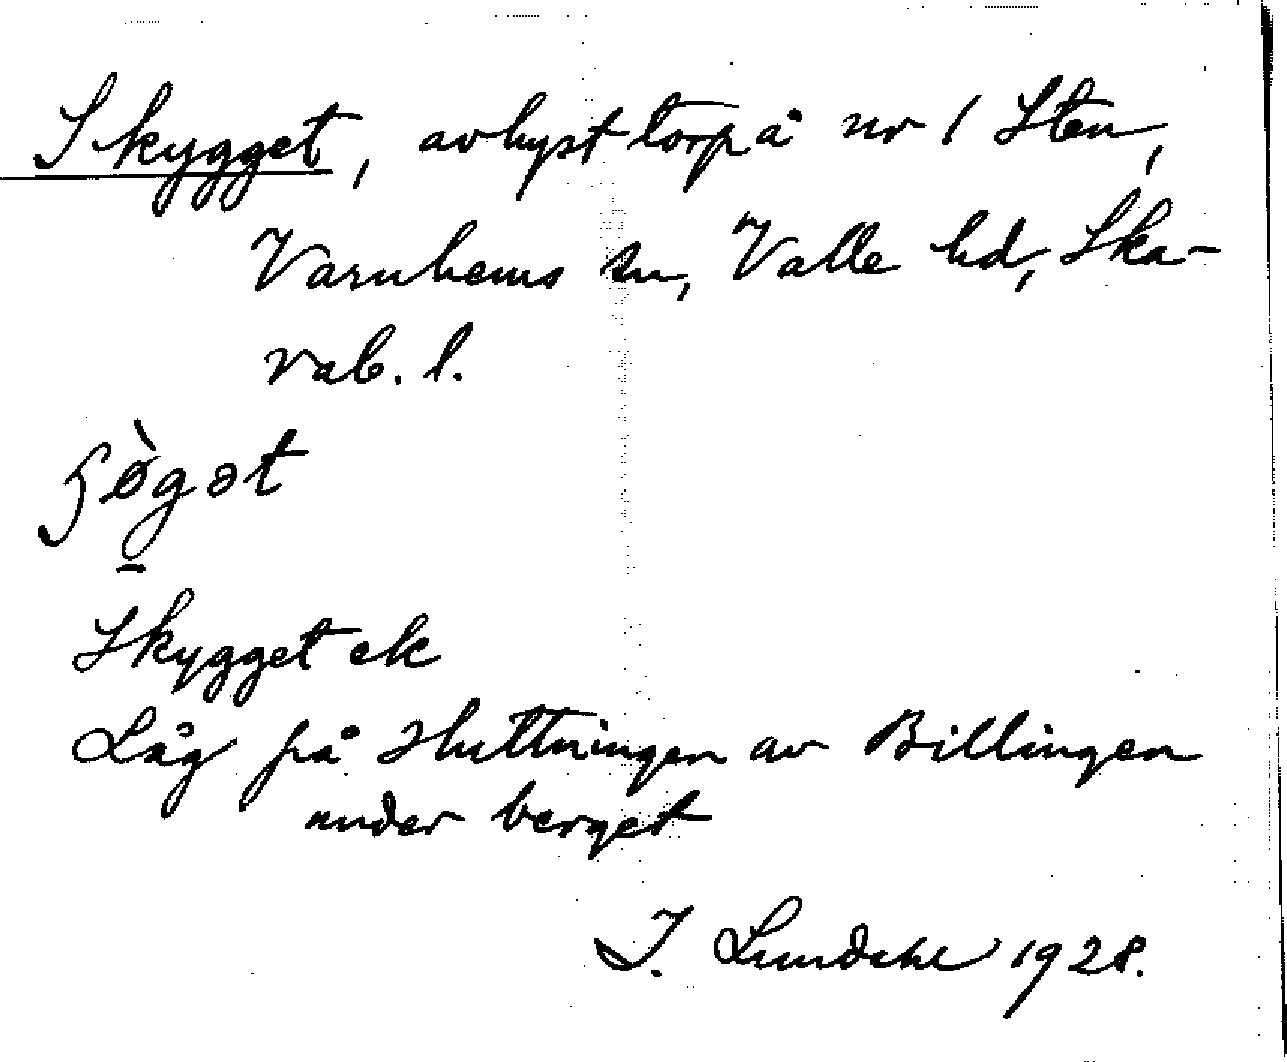 Skygget, avhyst torp å nr 1 Sten,
Varnhems sn, Valle hd, Ska-
rab. l.
ʃø̀g̱ət
Skygget ek
Låg på sluttningen av Billingen
under berget
I. Lundahl 1928.